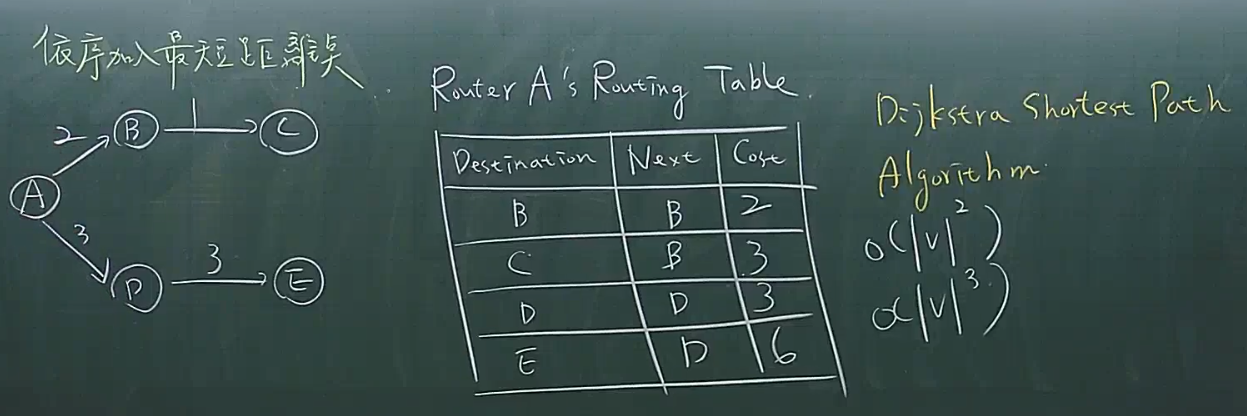 依序加入最短距離點
2
B
1
C
A
3
D
3
E
Router A's Routing Table
Destination Next Cost
B B 2
C B 3
D D 3
E D 6
Dijkstra Shortest Path
Algorithm.
O(|V|²)
O(|V|³)